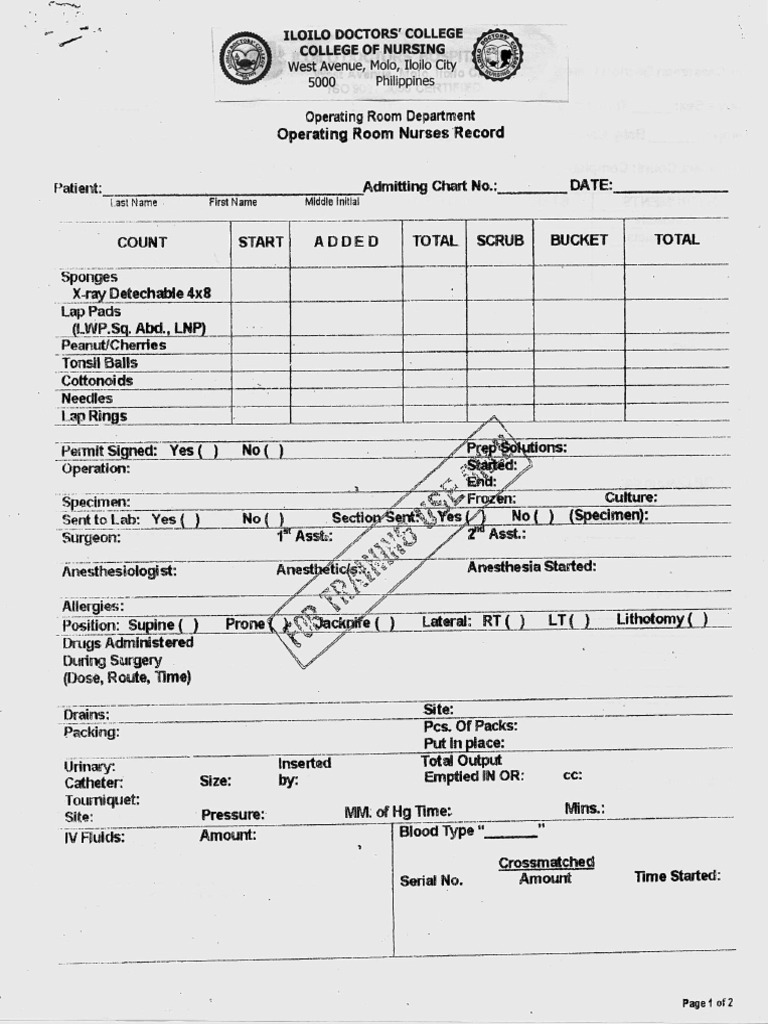 ILOILO DOCTORS' COLLEGE
COLLEGE OF NURSING
West Avenue, Molo, Iloilo City
5000 Philippines
Operating Room Department
Operating Room Nurses Record
Patient:____________________ Admitting Chart No.:_________ DATE:______________
Last Name First Name Middle Initial
COUNT START A D D E D TOTAL SCRUB BUCKET TOTAL
Sponges
X-ray Detechable 4x8
Lap Pads
(LWP.Sq. Abd., LNP)
Peanut/Cherries
Tonsil Balls
Cottonoids
Needles
Lap Rings
Permit Signed: Yes ( ) No ( ) Prep Solutions:
Operation: Started:
End:
Specimen: Frozen: Culture:
Sent to Lab: Yes ( ) No ( ) Section Sent: Yes ( ) No ( ) (Specimen):
Surgeon: 1st Asst.: 2nd Asst.:
Anesthesiologist: Anesthetic(s): Anesthesia Started:
FOR TRAINING USE ONLY
Allergies:
Position: Supine ( ) Prone ( ) Jacknife ( ) Lateral: RT ( ) LT ( ) Lithotomy ( )
Drugs Administered
During Surgery
(Dose, Route, Time)
Drains: Site:
Packing: Pcs. Of Packs:
Put in place:
Urinary: Inserted Total Output
Catheter: Size: by: Emptied IN OR: cc:
Tourniquet:
Site: Pressure: MM. of Hg Time: Mins.:
IV Fluids: Amount: Blood Type "_______"
Crossmatched
Serial No. Amount Time Started:
Page 1 of 2